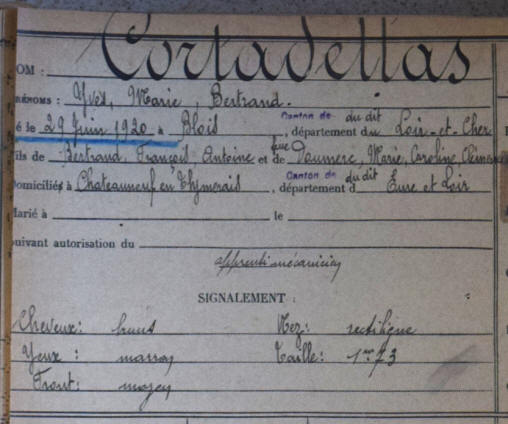 Cortadellas
NOM :
PRÉNOMS : Yves, Marie, Bertrand.
é le 29 Juin 1920 à Blois, Canton de du dit, département du Loir-et-Cher
ils de Bertrand, François, Antoine et de feue Doumere, Marie, Caroline, Clémence
Domiciliés à Chateauneuf en Thymerais, Canton de du dit, département d Eure et Loir
Marié à le
suivant autorisation du
apprenti mécanicien
SIGNALEMENT :
Cheveux: bruns Nez: rectiligne
Yeux : marron Taille: 1m73
Front: moyen